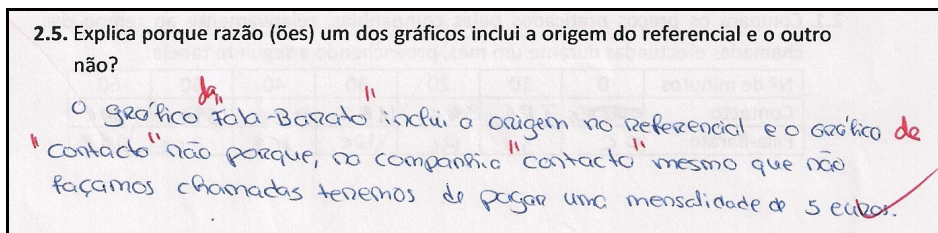 2.5. Explica porque razão (ões) um dos gráficos inclui a origem do referencial e o outro
não?
O gráfico da "Fala-Barato" inclui a origem no referencial e o gráfico de
"contacto" não porque, na companhia "contacto" mesmo que não
façamos chamadas teremos de pagar uma mensalidade de 5 euros.